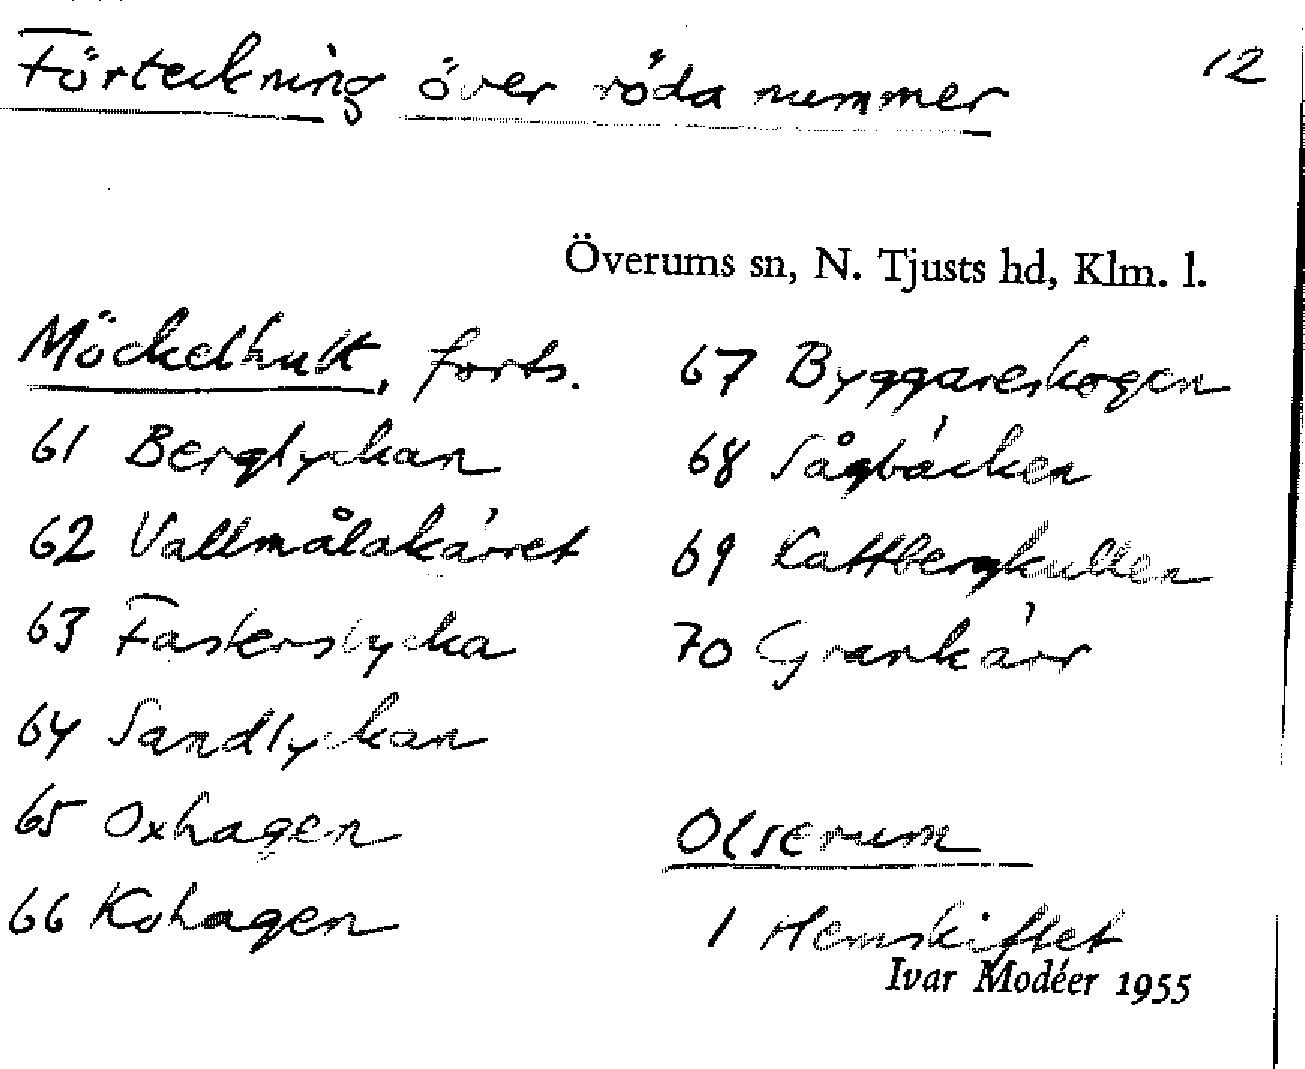 Förteckning över röda nummer
12
Överums sn, N. Tjusts hd, Klm. l.
Möckelhult, forts.
61 Berglyckan
62 Vallmålakärret
63 Fasterslycka
64 Sandlyckan
65 Oxhagen
66 Kohagen
67 Byggareskogen
68 Sågbäcken
69 Kattbergkullen
70 Grankärr
Olserum
1 Hemskiftet
Ivar Modéer 1955